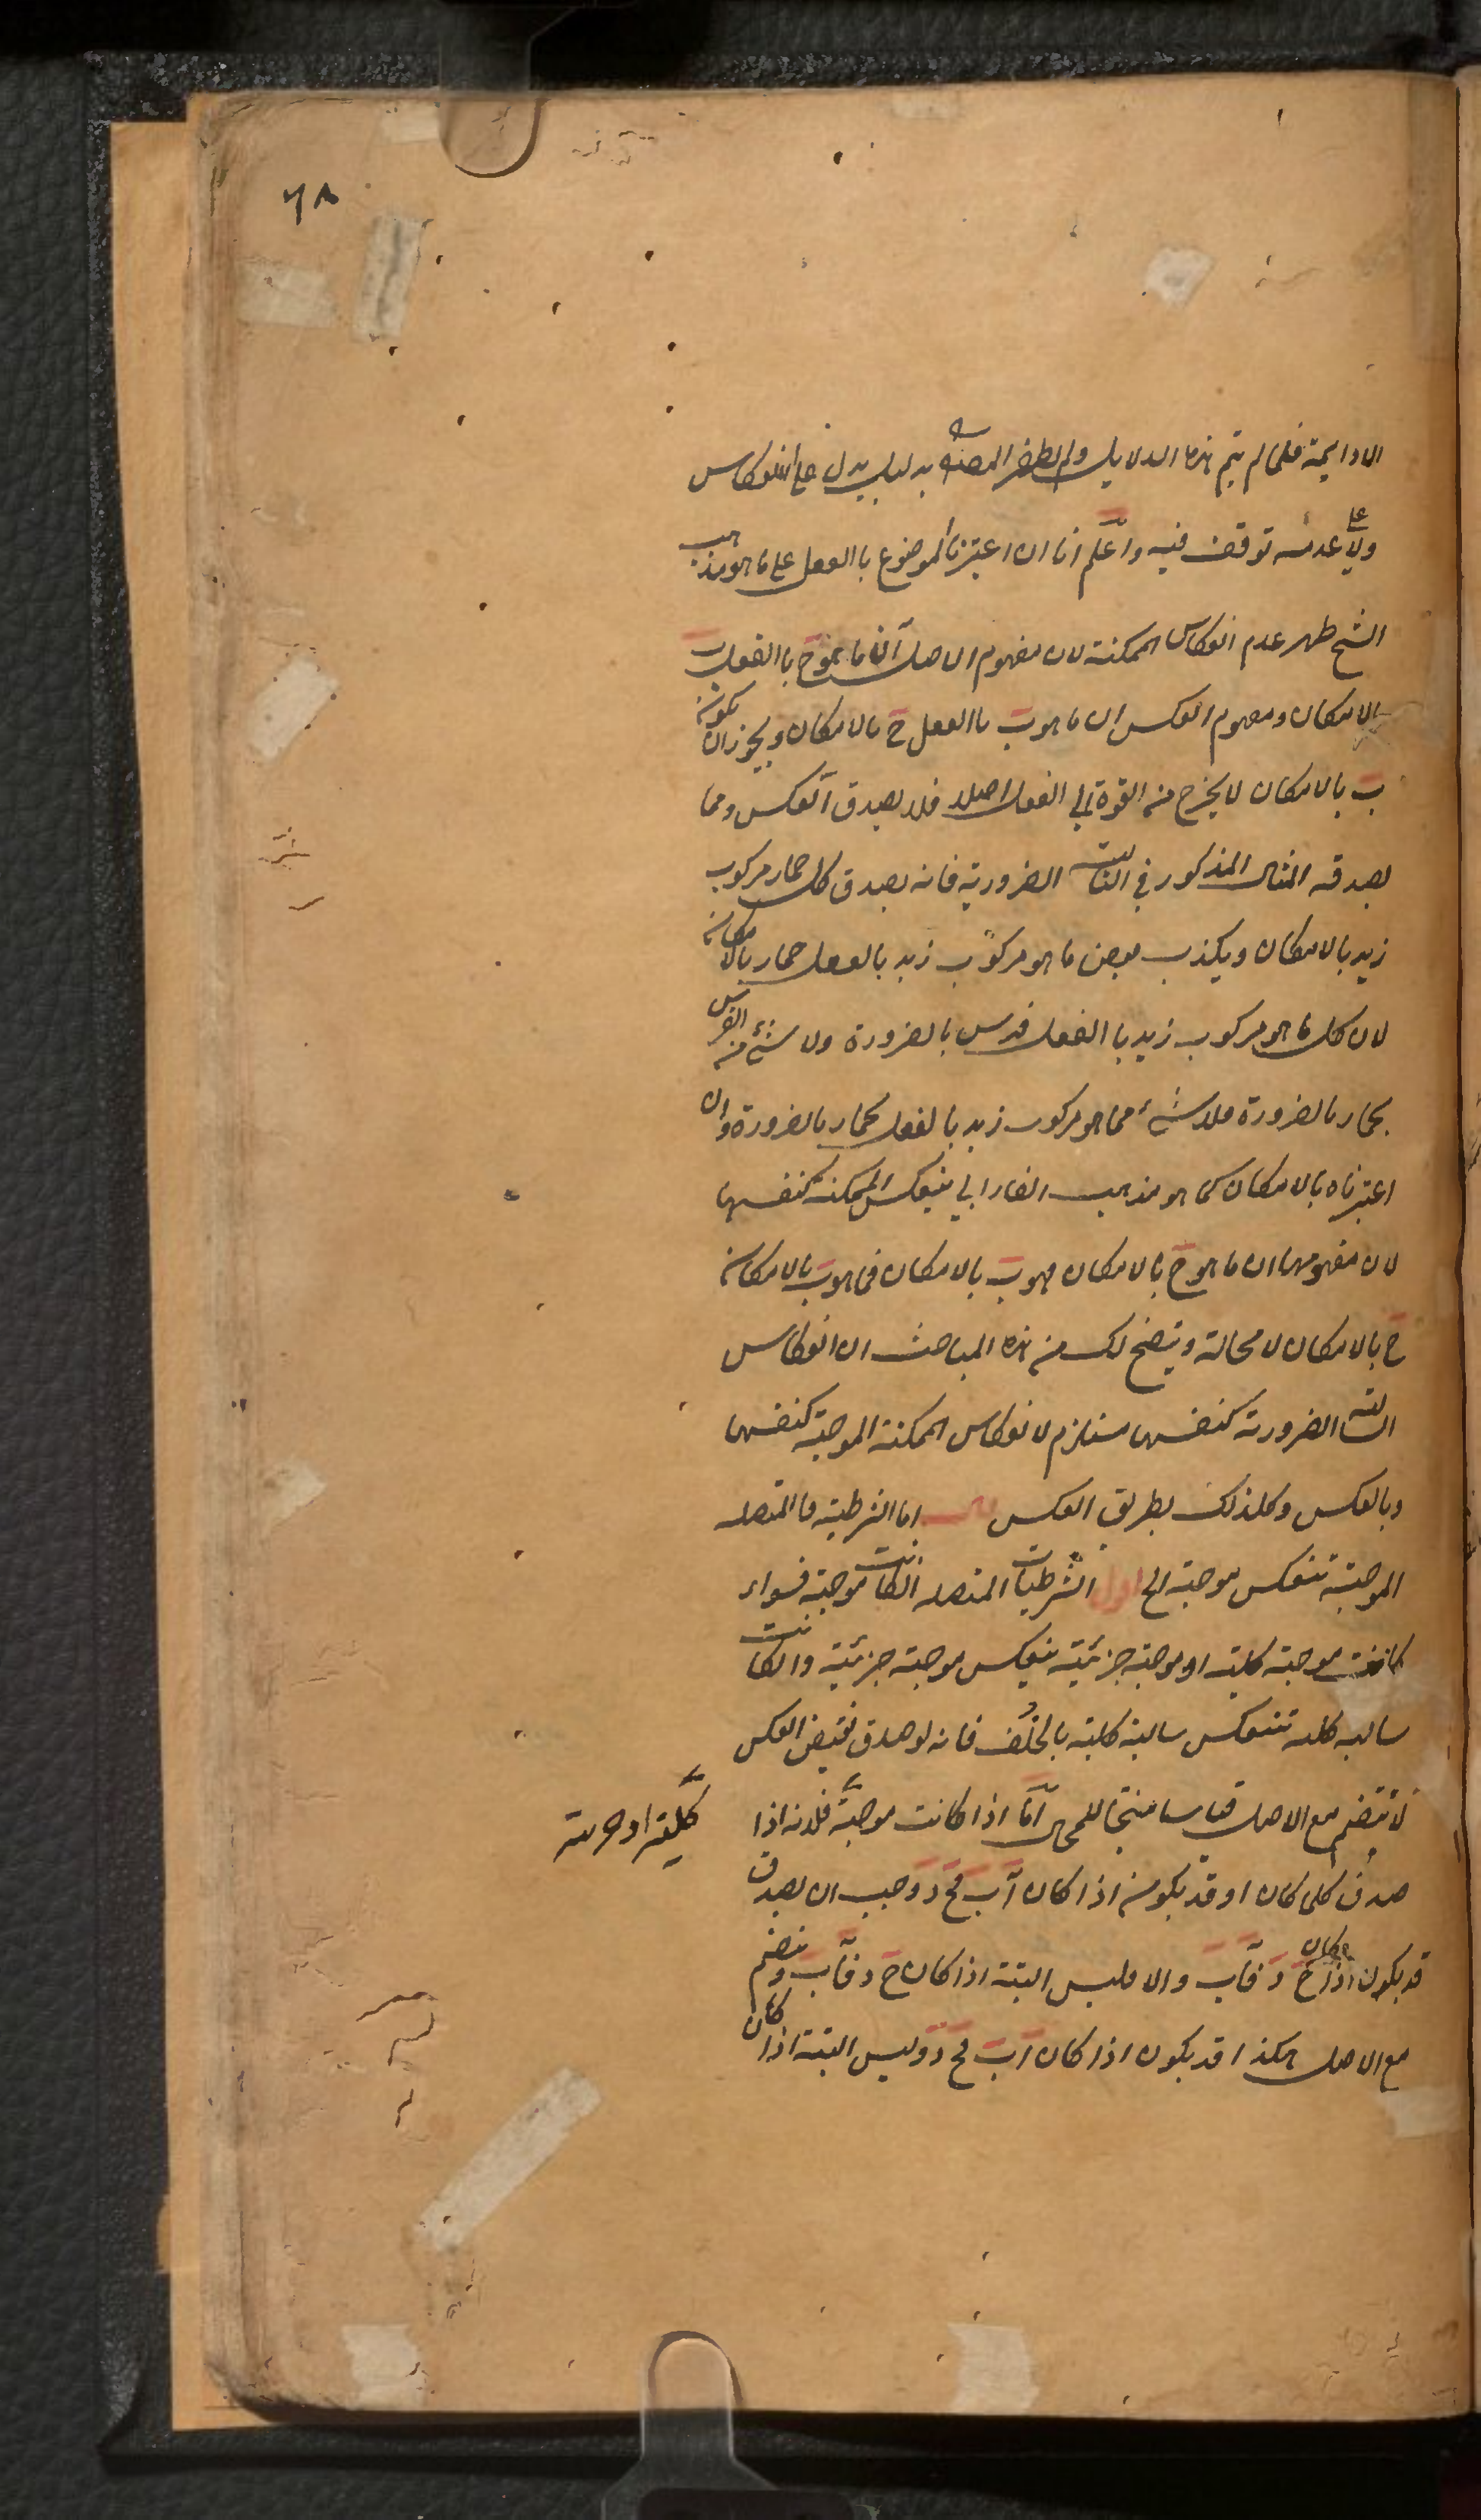 ٦٨
الا دايمة فلما لم يتم هذه الدلايل ولم يظفر المصنف بدليل يدل على الانعكاس
ولا على عدمه توقف فيه واعلم انا ان اعتبرنا الموضوع باالفعل على ما هو مذهب
الشيخ ظهر عدم انعكاس الممكنة لان مفهوم الاصل ان ما هو ج باالفعل ب
بالامكان ومفهوم العكس ان ما هو ب باالفعل ج بالامكان ويجوز ان يكون
ب بالامكان لا يخرج من القوة الى الفعل اصلا فلا يصدق العكس ومما
يصدقه المثال المذكور في السالبة الضرورية فانه يصدق كل حمار مركوب
زيد بالامكان ويكذب بعض ما هو مركوب زيد بالفعل حمار بالامكان
لان كل ما هو مركوب زيد باالفعل فرس بالضرورة ولا شئ من الفرس
بحمار بالضرورة فلا شئ مما هو مركوب زيد بالفعل بحمار بالضرورة وان
اعتبرناه بالامكان كما هو مذهب الفارابي ينعكس الممكنة كنفسها
لان مفهومها ان ما هو ج بالامكان فهو ب بالامكان فما هو ب بالامكان
ج بالامكان لا محالة ويتضح لك من هذه المباحث ان انعكاس
السالبة الضرورية كنفسها مستلزم لانعكاس الممكنة الموجبة كنفسها
وبالعكس وكل ذلك بطريق العكس قال اما الشرطية فالمتصلة
الموجبة تنعكس موجبة الخ اقول الشرطيات المتصلة ان كانت موجبة فسواء
كانت موجبة كلية او موجبة جزئية ينعكس موجبة جزئية وان كانت
سالبة كلية تنعكس سالبة كلية بالخلف فانه لو صدق نقيض العكس
لا تنضم مع الاصل قياسا منتجا للمحال اما اذا كانت موجبة فلانه اذا
كلية او جزئية
صدق كلما كان او قد يكون اذا كان اب فج د وجب ان يصدق
قد يكون اذا كان ج د فاب والا فليس البتة اذا كان ج د فاب وتنضم
مع الاصل هكذا قد يكون اذا كان اب فج د وليس البتة اذا كان